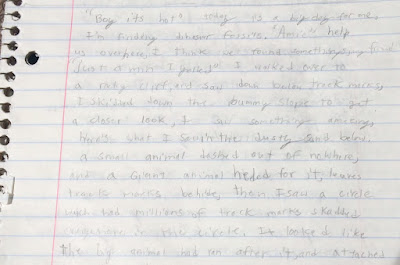 "Boy its hot" today is a big day for me.
I'm finding dinour fossils. "Amie" help
us over here, I think we found something" my friend
"Just a min I yelled" I walked over to
a rocky cliff, and saw down below track marks,
I skidded down the bummy slope to get
a closer look, I saw something amazing,
Heres what I saw in the dusty sand below.
a small animal dashed out of nowhere,
and a Giant animal headed for it, leaves
tracks marks behide, then I saw a circle
wich had millions of track marks skadded
everywhere in the circle. It looked like
the big animal had ran after it, and attached